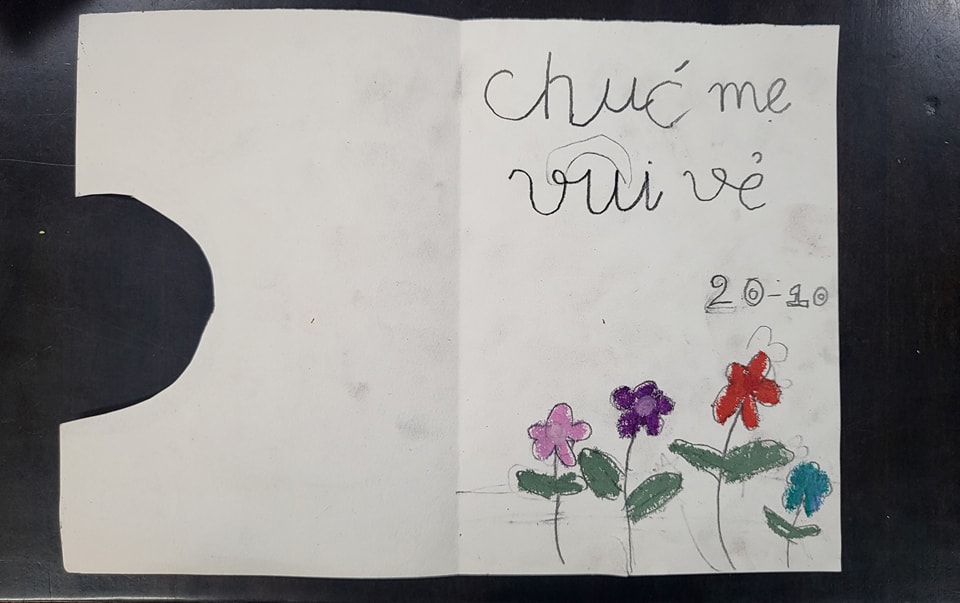 chúc mẹ
vui vẻ
20-10